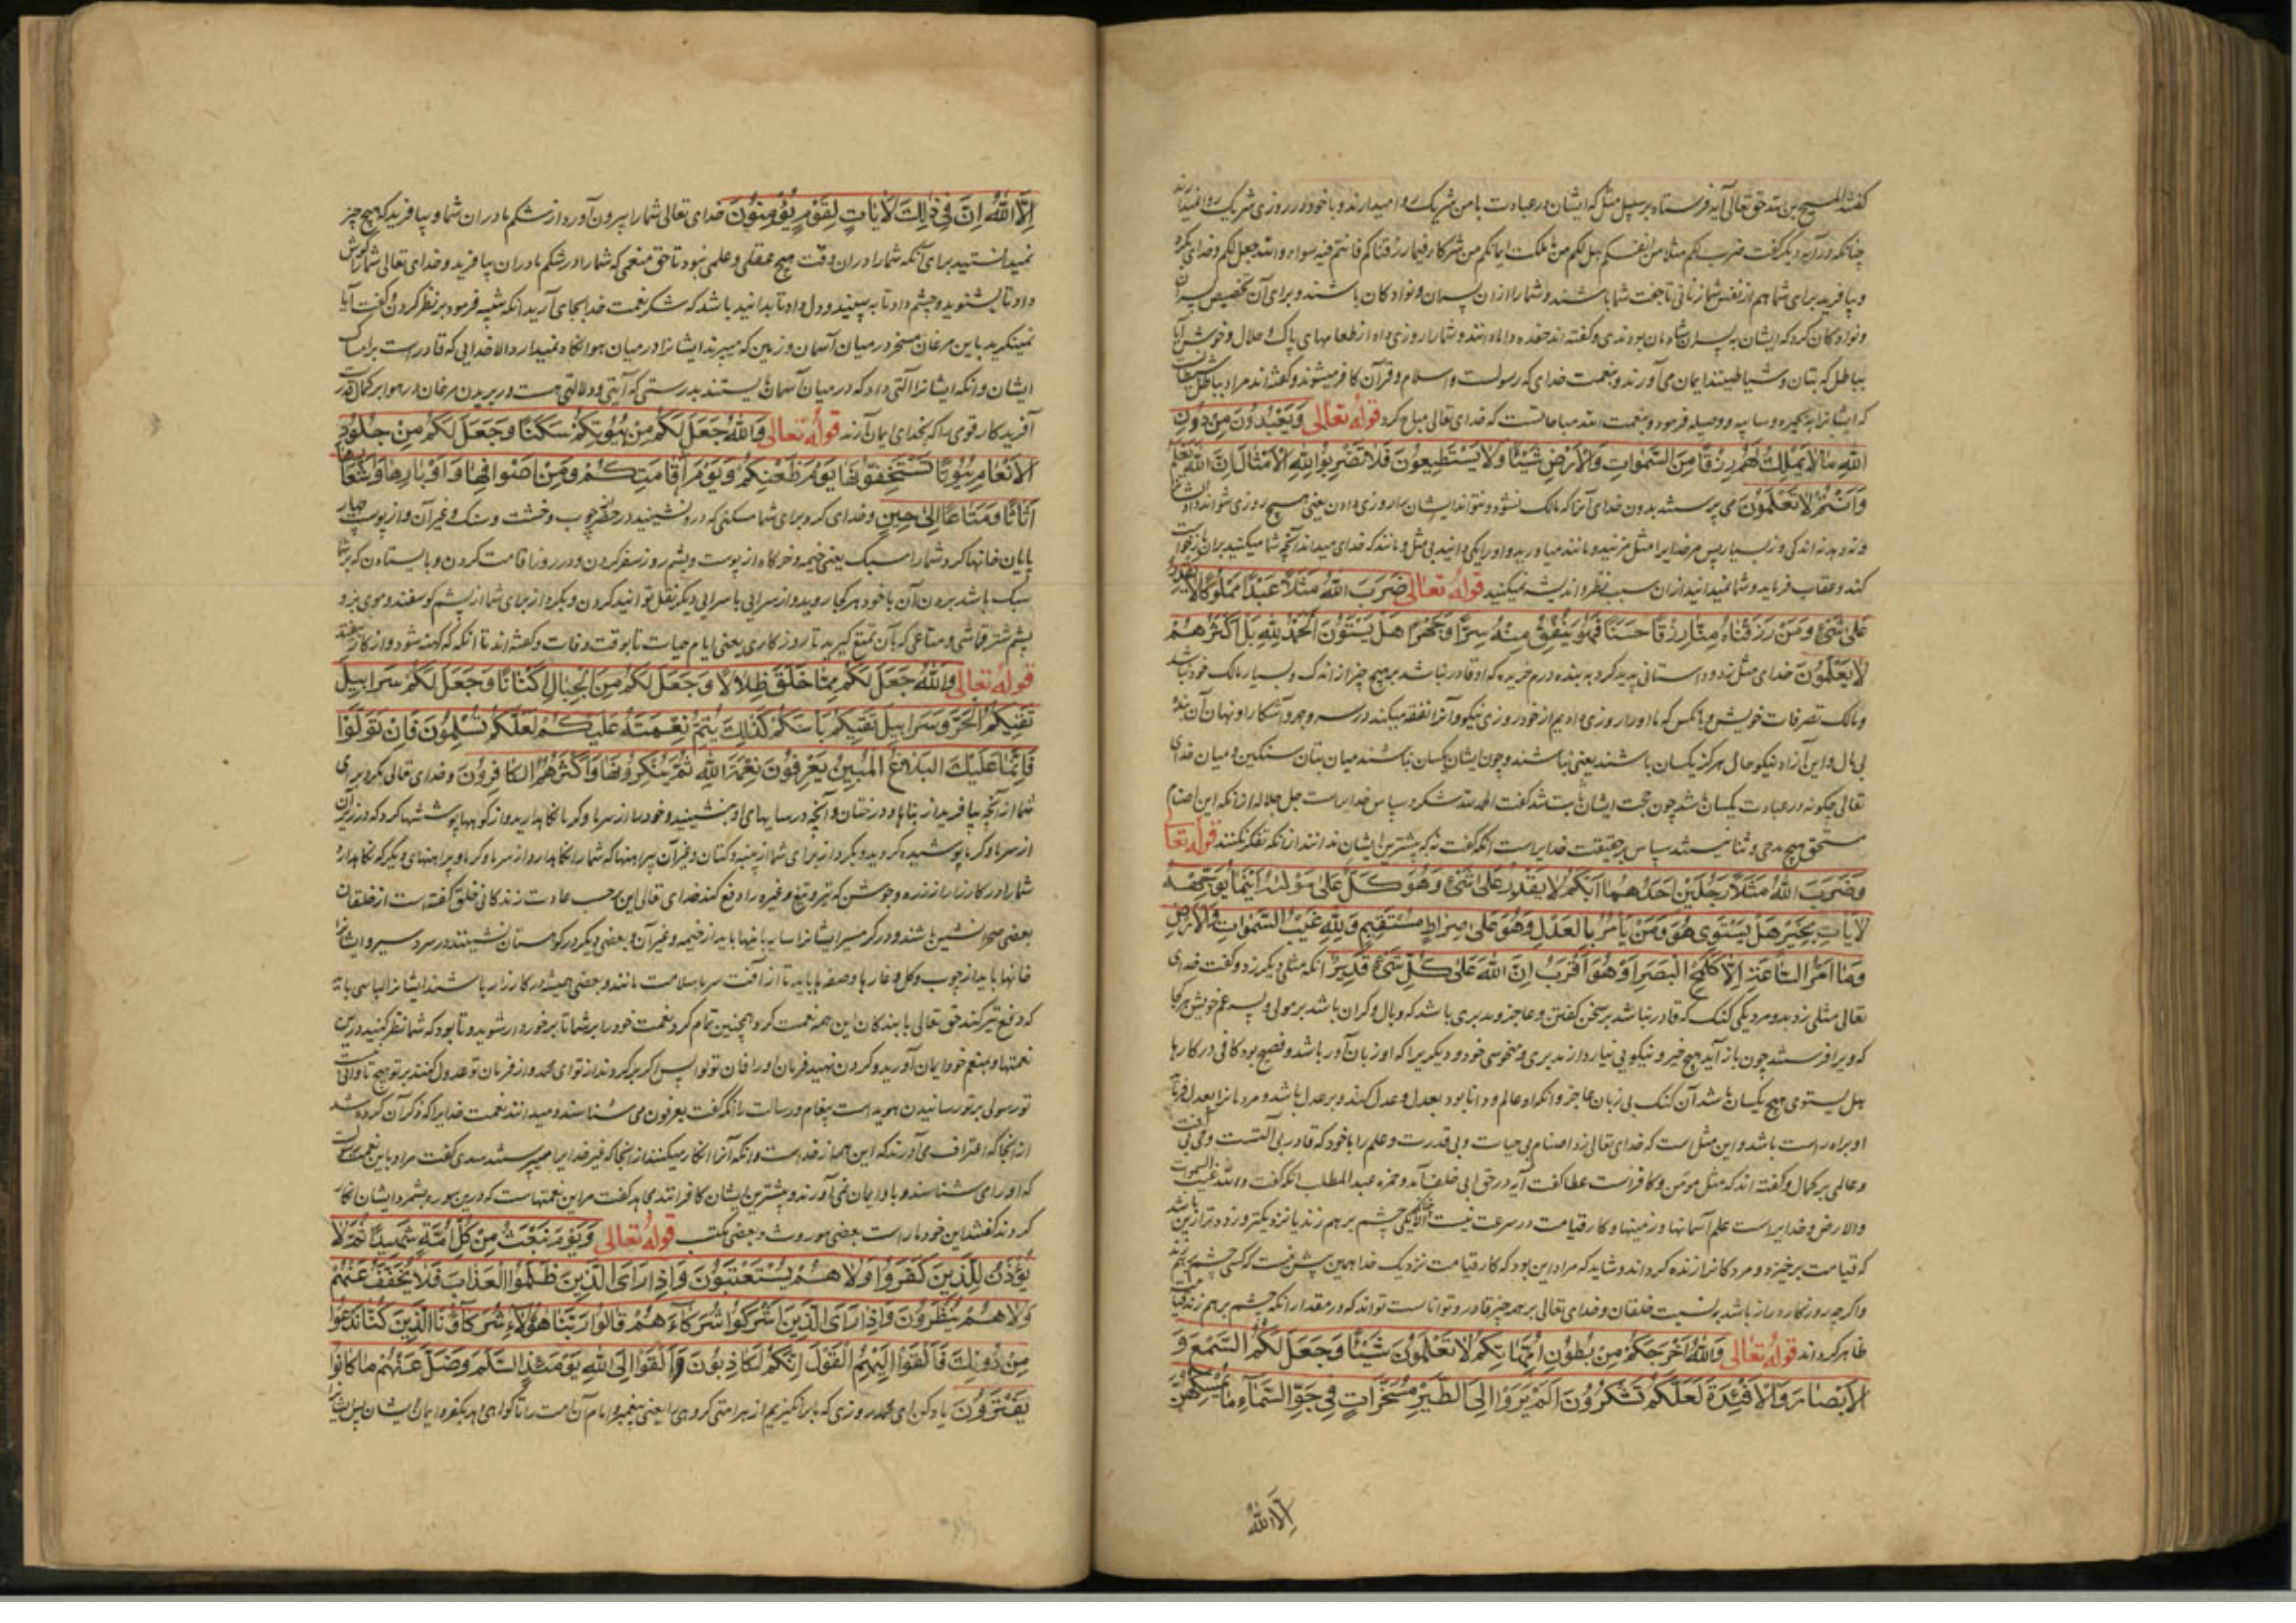 گفتند المسیح بن الله حق تعالی آیه فرستاد بر سبیل مثل که ایشان در عبادت با من شریک روا میدارند و با خود در روزی شریک روا نمیدارند
چنانکه در آیه دیگر گفت ضرب لکم مثلا من انفسکم هل لکم من ما ملکت ایمانکم من شرکاء فیما رزقناکم فانتم فیه سواء و الله جعل لکم و خدای بکرد
و بیافرید برای شما هم از نفس شما زنانی تا جفت شما باشند و شما را از ان پسران و نوادگان باشند و برای آن تخصیص پسران
و نوادگان کرد که ایشان به پسران شادمان بودندی و گفته اند حفده دامادانند و شما را روزی داد از طعامهای پاک و حلال و خوش آیا
بباطل که بتان و شیاطینند ایمان می آورند و بنعمت خدای که رسولست و اسلام و قرآن کافر میشوند و گفته اند مراد بباطل شیطانست
که ایشانرا بحیره و سایبه و وصیله فرمود و بنعمت الله مباحاتست که خدای تعالی مباح کرد قوله تعالی وَيَعْبُدُونَ مِنْ دُونِ
اللَّهِ مَا لَا يَمْلِكُ لَهُمْ رِزْقًا مِنَ السَّمٰوَاتِ وَالْأَرْضِ شَيْئًا وَلَا يَسْتَطِيعُونَ فَلَا تَضْرِبُوا لِلَّهِ الْأَمْثَالَ إِنَّ اللَّهَ يَعْلَمُ
وَأَنْتُمْ لَا تَعْلَمُونَ می پرستند بدون خدای آنرا که مالک نشود و نتواند ایشان را روزی دادن یعنی هیچ روزی نتواند داد
و نه اندکی و نه بسیار پس مر خدایرا مثل مزنید و مانند میاورید و او را یکی دانید بی مثل و مانند که خدای میداند آنچه شما میکنید بران
کند و عقاب فرماید و شما نمیدانید از ان سبب نظر و اندیشه نمیکنید قوله تعالی ضَرَبَ اللَّهُ مَثَلًا عَبْدًا مَمْلُوكًا لَا يَقْدِرُ
عَلَى شَيْءٍ وَمَنْ رَزَقْنَاهُ مِنَّا رِزْقًا حَسَنًا فَهُوَ يُنْفِقُ مِنْهُ سِرًّا وَجَهْرًا هَلْ يَسْتَوُونَ الْحَمْدُ لِلَّهِ بَلْ أَكْثَرُهُمْ
لَا يَعْلَمُونَ خدای مثل زد و داستانی پدید کرد به بنده درم خریده که او قادر نباشد بر هیچ چیز از اندک و بسیار مالک خود نباشد
و مالک تصرفات خویش و بانکس که ما او را روزی دادیم از خود روزی نیکو و آنرا نفقه میکند در سر و جهر و آشکارا و نهان آن بنده
بی مال و این آزاد نیکو حال هرگز یکسان باشند یعنی نباشند و چون ایشان یکسان نباشند میان بتان سنگین و میان خدای
تعالی چگونه در عبادت یکسان باشد چون حجت ایشان ثابت شد گفت الحمد لله شکر و سپاس خدایراست جل جلاله از انکه این اصنام
مستحق هیچ مدحی و ثنا نیستند سپاس بر حقیقت خدایراست انکه گفت نه که بیشترین ایشان ندانند از انکه تفکر نکنند قوله تعا
وَضَرَبَ اللَّهُ مَثَلًا رَجُلَيْنِ أَحَدُهُمَا أَبْكَمُ لَا يَقْدِرُ عَلَى شَيْءٍ وَهُوَ كَلٌّ عَلَى مَوْلَاهُ أَيْنَمَا يُوَجِّهْهُ
لَا يَأْتِ بِخَيْرٍ هَلْ يَسْتَوِي هُوَ وَمَنْ يَأْمُرُ بِالْعَدْلِ وَهُوَ عَلَى صِرَاطٍ مُسْتَقِيمٍ وَلِلَّهِ غَيْبُ السَّمٰوَاتِ وَالْأَرْضِ
وَمَا أَمْرُ السَّاعَةِ إِلَّا كَلَمْحِ الْبَصَرِ أَوْ هُوَ أَقْرَبُ إِنَّ اللَّهَ عَلَى كُلِّ شَيْءٍ قَدِيرٌ انکه مثلی دیگر زد و گفت خدای
تعالی مثلی زد بدو مرد یکی گنگ که قادر نباشد بر سخن گفتن و عاجز و مدبری باشد که وبال و گران باشد بر مولی و پسر عم خویش هر کجا
که ویرا فرستد چون باز آید هیچ خیر و نیکویی نیارد از مدبری و منحوسی خود و دیگر یرا که او زبان آور باشد و فصیح بود کافی در کارها
هل یستوی هیچ یکسان باشد آن گنگ بی زبان عاجز و انکه او عالم و دانا بود بعدل و عدل کند و بر عدل باشد و مردمانرا بعدل فرماید
او براه راست باشد و این مثل است که خدای تعالی زد اصنام بی حیات و بی قدرت و علم را با خود که قادر بی آلتست و حی بی آفت
و عالمی بر کمال و گفته اند که مثل مومن و کافر است عطا گفت آیه در حق ابی خلف آمد و حمزه عبد المطلب انکه گفت و لله غیب السموات
والارض و خدایراست علم آسمانها و زمینها و کار قیامت در سرعت نیست الا چنانکه یکی چشم بر هم زند یا نزدیکتر و زودتر ازین باشد
که قیامت برخیزد و مردگانرا زنده گرداند و شاید که مراد این بود که کار قیامت نزدیک خدا همین پیش نیست که کسی چشم بر هم زند
و اگر چه روزگار دراز باشد بر نسبت خلقان و خدای تعالی بر همه چیز قادر و تواناست تواند که در مقدار انکه چشم بر هم زند قیامت
ظاهر گرداند قوله تعالی وَاللَّهُ أَخْرَجَكُمْ مِنْ بُطُونِ أُمَّهَاتِكُمْ لَا تَعْلَمُونَ شَيْئًا وَجَعَلَ لَكُمُ السَّمْعَ وَ
الْأَبْصَارَ وَالْأَفْئِدَةَ لَعَلَّكُمْ تَشْكُرُونَ أَلَمْ يَرَوْا إِلَى الطَّيْرِ مُسَخَّرَاتٍ فِي جَوِّ السَّمَاءِ مَا يُمْسِكُهُنَّ
اِلَّا اللّٰهُ
إِلَّا اللَّهُ إِنَّ فِي ذٰلِكَ لَآيَاتٍ لِقَوْمٍ يُؤْمِنُونَ خدای تعالی شما را بیرون آورد از شکم مادران شما و بیافرید که هیچ چیز
نمیدانستید برای آنکه شما را در ان وقت هیچ عقلی و علمی نبود تا حق منعمی که شما را در شکم مادران بیافرید و خدای تعالی شما را گوش
داد تا بشنوید و چشم داد تا ببینید و دل داد تا بدانید باشد که شکر نعمت خدا بجای آرید انکه تنبیه فرمود بر نظر کردن و گفت آیا
نمینگرید باین مرغان مسخر در میان آسمان و زمین که میپرند ایشانرا در میان هوا نگاه نمیدارد الا خدایی که قادر است بر امساک
ایشان و انکه ایشانرا آلتی داد که در میان آسمان بایستند بدرستی که آیتی و دلالتی هست در پریدن مرغان در هوا بر کمال قدرت
آفریدکار قومی را که بخدای ایمان آرند قوله تعالی وَاللَّهُ جَعَلَ لَكُمْ مِنْ بُيُوتِكُمْ سَكَنًا وَجَعَلَ لَكُمْ مِنْ جُلُودِ
الْأَنْعَامِ بُيُوتًا تَسْتَخِفُّونَهَا يَوْمَ ظَعْنِكُمْ وَيَوْمَ إِقَامَتِكُمْ وَمِنْ أَصْوَافِهَا وَأَوْبَارِهَا وَأَشْعَارِهَا
أَثَاثًا وَمَتَاعًا إِلَى حِينٍ و خدای کرد برای شما مسکنی که درو نشینید در حضر چوب و خشت و سنگ و غیر آن و از پوست چهار
پایان خانها کرد شما را سبک یعنی خیمه و خرگاه از پوست و پشم روز سفر کردن و در روز اقامت کردن و بایستادن که بر شما
سبک باشد بردن آن با خود هر کجا روید و از سرایی با سرایی دیگر نقل توانید کردن و بکرد از برای شما از پشم گوسفند و موی بز و
پشم شتر قماشی و متاعی که بآن تمتع گیرید تا روزگاری یعنی ایام حیات تا بوقت وفات و گفته اند تا انکه که کهنه شود و از کار بیفتد
قوله تعالی وَاللَّهُ جَعَلَ لَكُمْ مِمَّا خَلَقَ ظِلَالًا وَجَعَلَ لَكُمْ مِنَ الْجِبَالِ أَكْنَانًا وَجَعَلَ لَكُمْ سَرَابِيلَ
تَقِيكُمُ الْحَرَّ وَسَرَابِيلَ تَقِيكُمْ بَأْسَكُمْ كَذٰلِكَ يُتِمُّ نِعْمَتَهُ عَلَيْكُمْ لَعَلَّكُمْ تُسْلِمُونَ فَإِنْ تَوَلَّوْا
فَإِنَّمَا عَلَيْكَ الْبَلَاغُ الْمُبِينُ يَعْرِفُونَ نِعْمَةَ اللَّهِ ثُمَّ يُنْكِرُونَهَا وَأَكْثَرُهُمُ الْكَافِرُونَ و خدای تعالی بکرد برای
شما از آنچه بیافرید از بناها و درختان و آنچه در سایهای او بنشینید و خود را از سرما و گرما نگاهدارید و از کوهها پوششها کرد که در زیر آن
از سرما و گرما پوشیده گردید و بکرد از برای شما از پنبه و کتان و غیر آن پیراهنها که شما را نگاهدارد از سرما و گرما و پیراهنهای دیگر که نگاهدارد
شما را در کارزار از زره و جوشن که تیر و تیغ و غیره را دفع کند خدای تعالی این بر حسب عادت زندگانی خلق گفته است از خلقان
بعضی صحرا نشین باشند و در گرمسیر ایشانرا سایه بانها باید از خیمه و غیر آن و بعضی دیگر در کوهستان نشینند در سردسیر و ایشانرا
خانها باید از چوب و گل و غارها و صفها باید تا از آفت سرما سلامت مانند و بعضی همیشه در کارزار باشند ایشانرا لباسی باید
که دفع تیر کند حق تعالی با بندگان این همه نعمت کرد و همچنین تمام کرد نعمت خود را بر شما تا برخوردار شوید و تا بود که شما نظر کنید درین
نعمتها و بمنعم خود ایمان آورید و گردن نهید فرمان او را فان تولوا پس اگر برگردند از تو ای محمد و از فرمان تو عدول کنند بر تو هیچ تاوان نیست
تو رسولی بر تو رسانیدن هویداست پیغام و رسالت را انکه گفت یعرفون می شناسند و میدانند نعمت خدایرا که ذکر آن کرده شد
از انجا که اعتراف می آورند که این همه از خداست و انکه آنرا انکار میکنند از انجا که غیر خدایرا میپرستند سدی گفت مراد باین نعمت رسولست
که او را می شناسند و باو ایمان نمی آورند و بیشترین ایشان کافرانند مجاهد گفت مراد این نعمتهاست که درین سوره بشمرد ایشان انکار
کردند گفتند این خود ماراست بعضی موروث و بعضی مکتسب قوله تعالی وَيَوْمَ نَبْعَثُ مِنْ كُلِّ أُمَّةٍ شَهِيدًا ثُمَّ لَا
يُؤْذَنُ لِلَّذِينَ كَفَرُوا وَلَا هُمْ يُسْتَعْتَبُونَ وَإِذَا رَأَى الَّذِينَ ظَلَمُوا الْعَذَابَ فَلَا يُخَفَّفُ عَنْهُمْ
وَلَا هُمْ يُنْظَرُونَ وَإِذَا رَأَى الَّذِينَ أَشْرَكُوا شُرَكَاءَهُمْ قَالُوا رَبَّنَا هٰؤُلَاءِ شُرَكَاؤُنَا الَّذِينَ كُنَّا نَدْعُوا
مِنْ دُونِكَ فَأَلْقَوْا إِلَيْهِمُ الْقَوْلَ إِنَّكُمْ لَكَاذِبُونَ وَأَلْقَوْا إِلَى اللَّهِ يَوْمَئِذٍ السَّلَمَ وَضَلَّ عَنْهُمْ مَا كَانُوا
يَفْتَرُونَ یاد کن ای محمد روزی که ما برانگیزیم از هر امتی گروهی یعنی پیغمبر و امام آن امت را تا گواهی دهد بکفر و ایمان ایشان